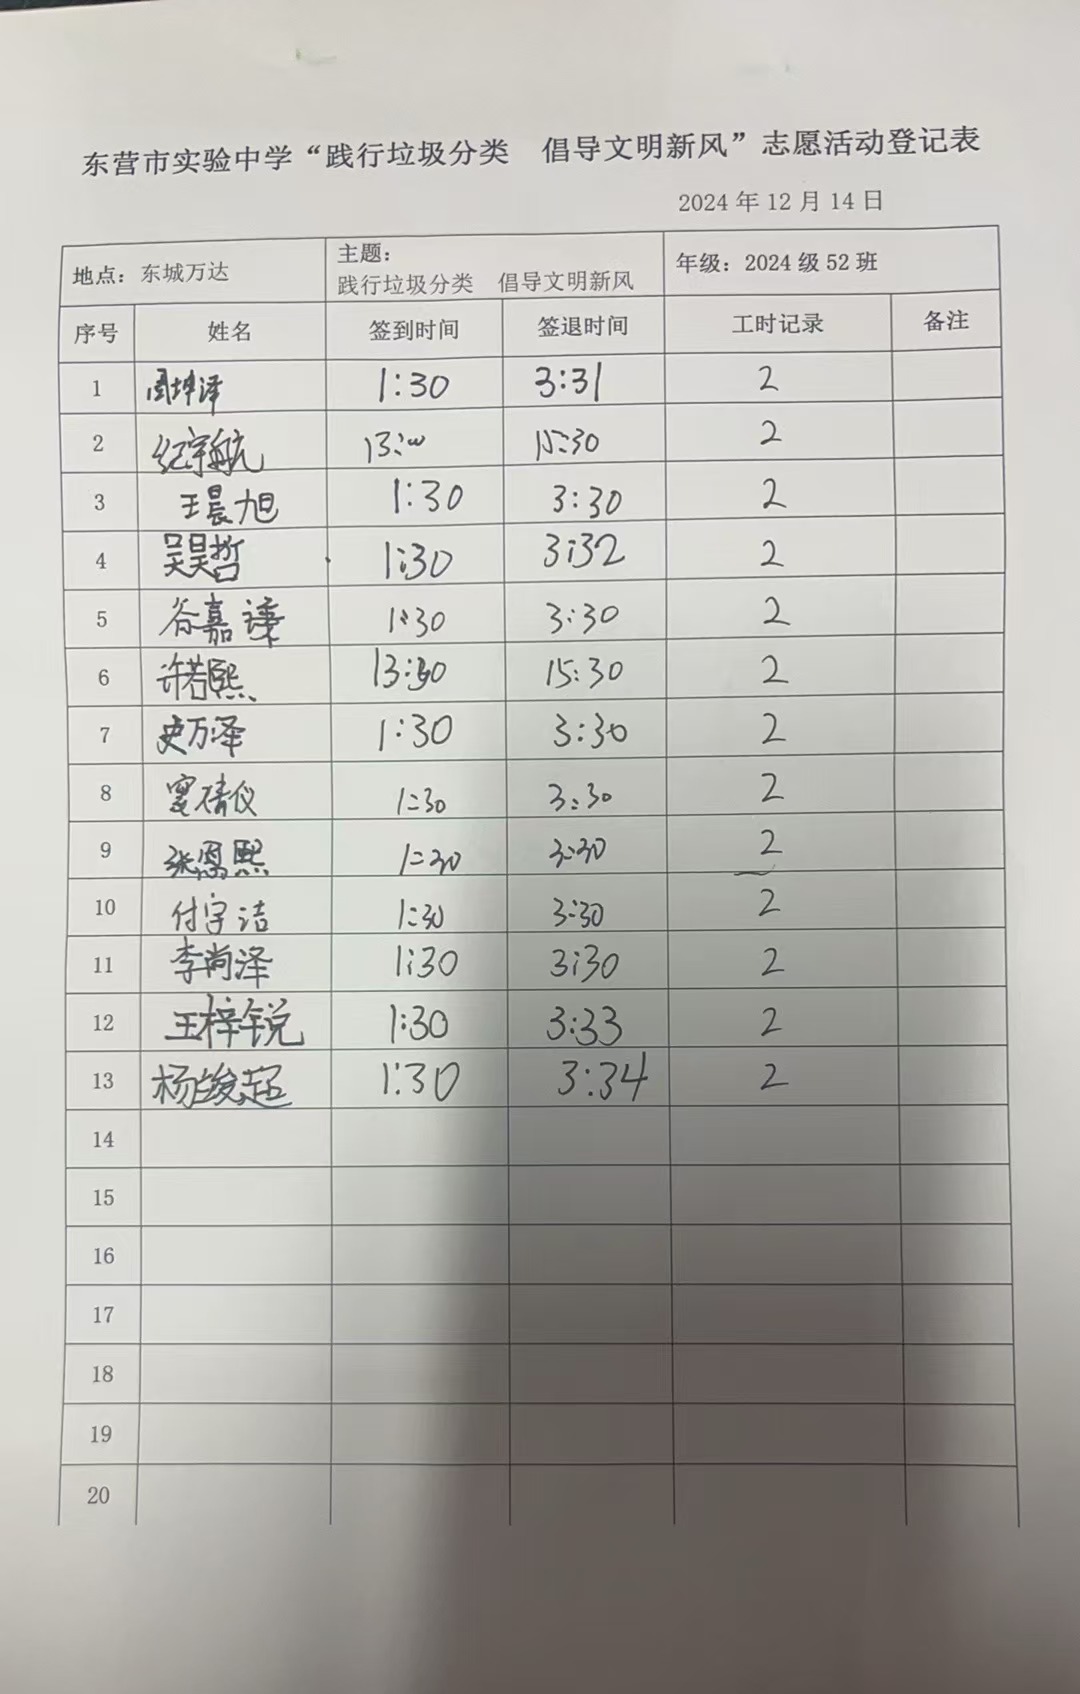 东营市实验中学“践行垃圾分类 倡导文明新风”志愿活动登记表
2024 年 12 月 14 日
地点：东城万达 主题：践行垃圾分类 倡导文明新风 年级：2024 级 52 班
序号 姓名 签到时间 签退时间 工时记录 备注
1 周坤泽 1:30 3:31 2
2 纪宇航 13: 15:30 2
3 王晨旭 1:30 3:30 2
4 吴昊哲 1:30 3:32 2
5 谷嘉谦 1:30 3:30 2
6 许若熙 13:30 15:30 2
7 史万泽 1:30 3:30 2
8 窦倩仪 1:30 3:30 2
9 张恩熙 1:30 3:30 2
10 付宇洁 1:30 3:30 2
11 李尚泽 1:30 3:30 2
12 王梓锐 1:30 3:33 2
13 杨俊超 1:30 3:34 2
14
15
16
17
18
19
20